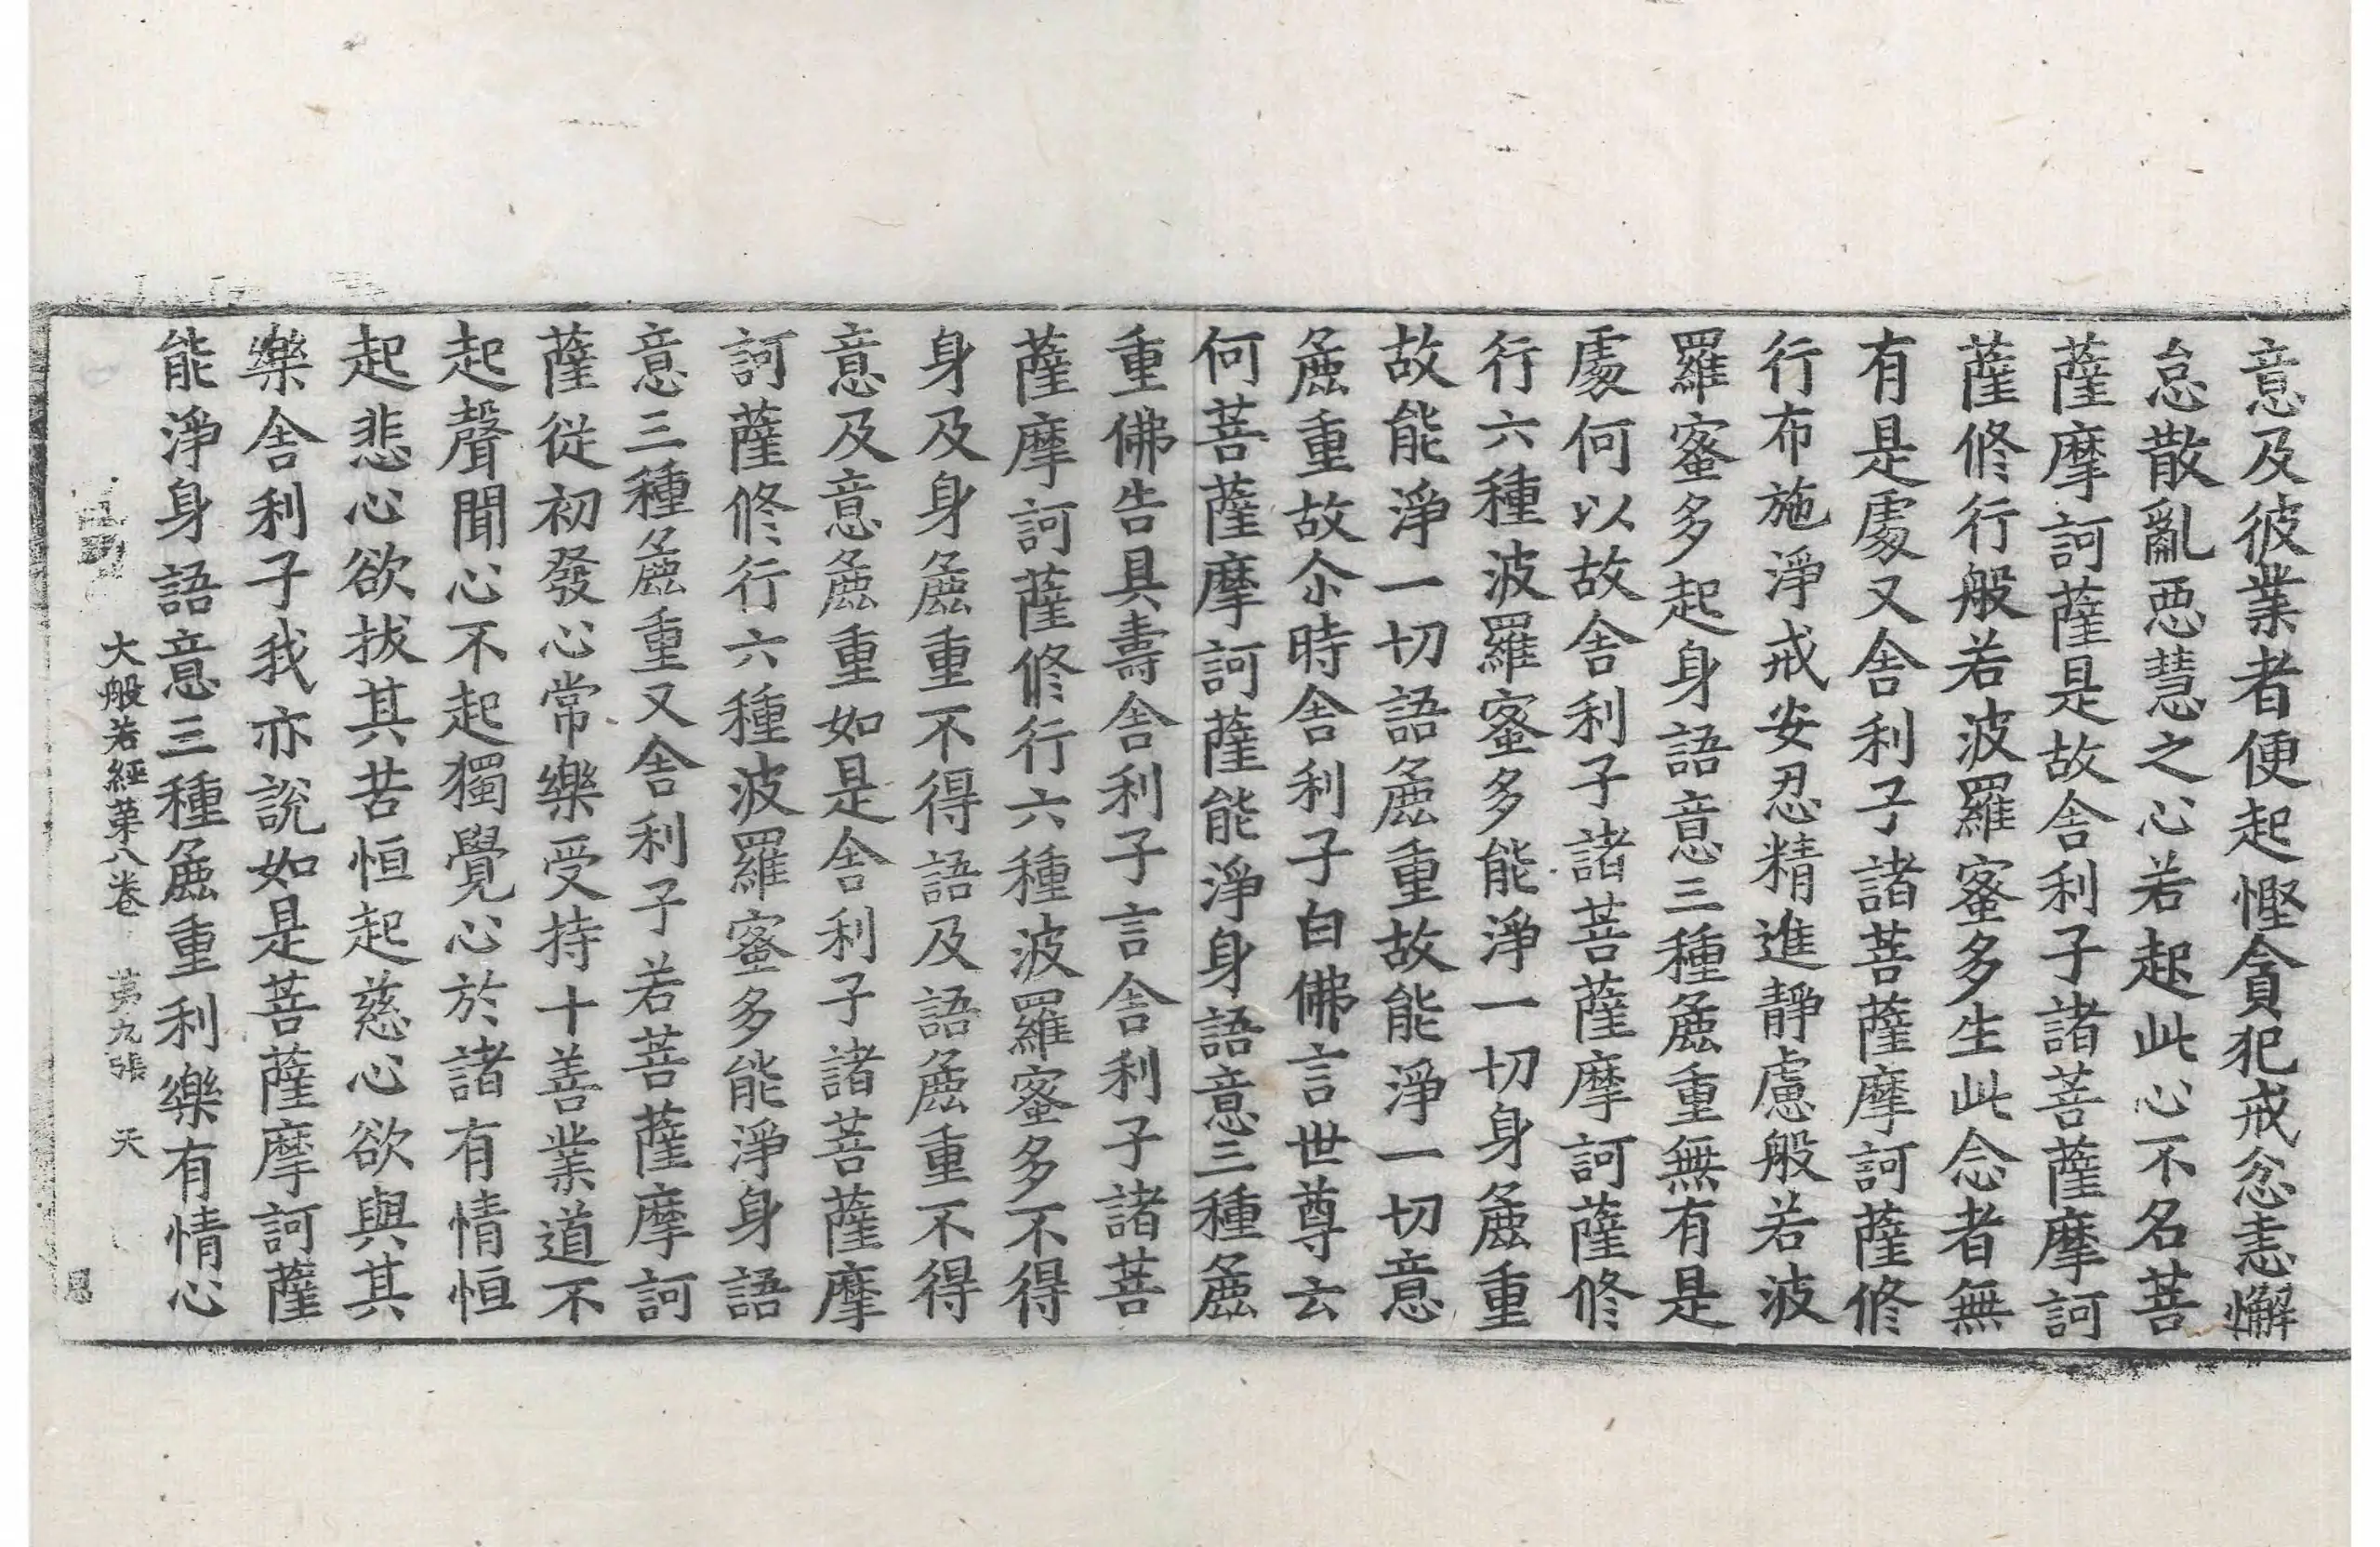 意及彼業者便起慳貪犯戒忿恚懈
怠散亂惡慧之心若起此心不名菩
薩摩訶薩是故舍利子諸菩薩摩訶
薩修行般若波羅蜜多生此念者無
有是處又舍利子諸菩薩摩訶薩修
行布施淨戒安忍精進靜慮般若波
羅蜜多起身語意三種麁重無有是
處何以故舍利子諸菩薩摩訶薩修
行六種波羅蜜多能淨一切身麁重
故能淨一切語麁重故能淨一切意
麁重故尒時舍利子白佛言世尊云
何菩薩摩訶薩能淨身語意三種麁
重佛告具壽舍利子言舍利子諸菩
薩摩訶薩修行六種波羅蜜多不得
身及身麁重不得語及語麁重不得
意及意麁重如是舍利子諸菩薩摩
訶薩修行六種波羅蜜多能淨身語
意三種麁重又舍利子若菩薩摩訶
薩從初發心常樂受持十善業道不
起聲聞心不起獨覺心於諸有情恒
起悲心欲拔其苦恒起慈心欲與其
樂舍利子我亦說如是菩薩摩訶薩
能淨身語意三種麁重利樂有情心
大般若經第八卷 第九張 天